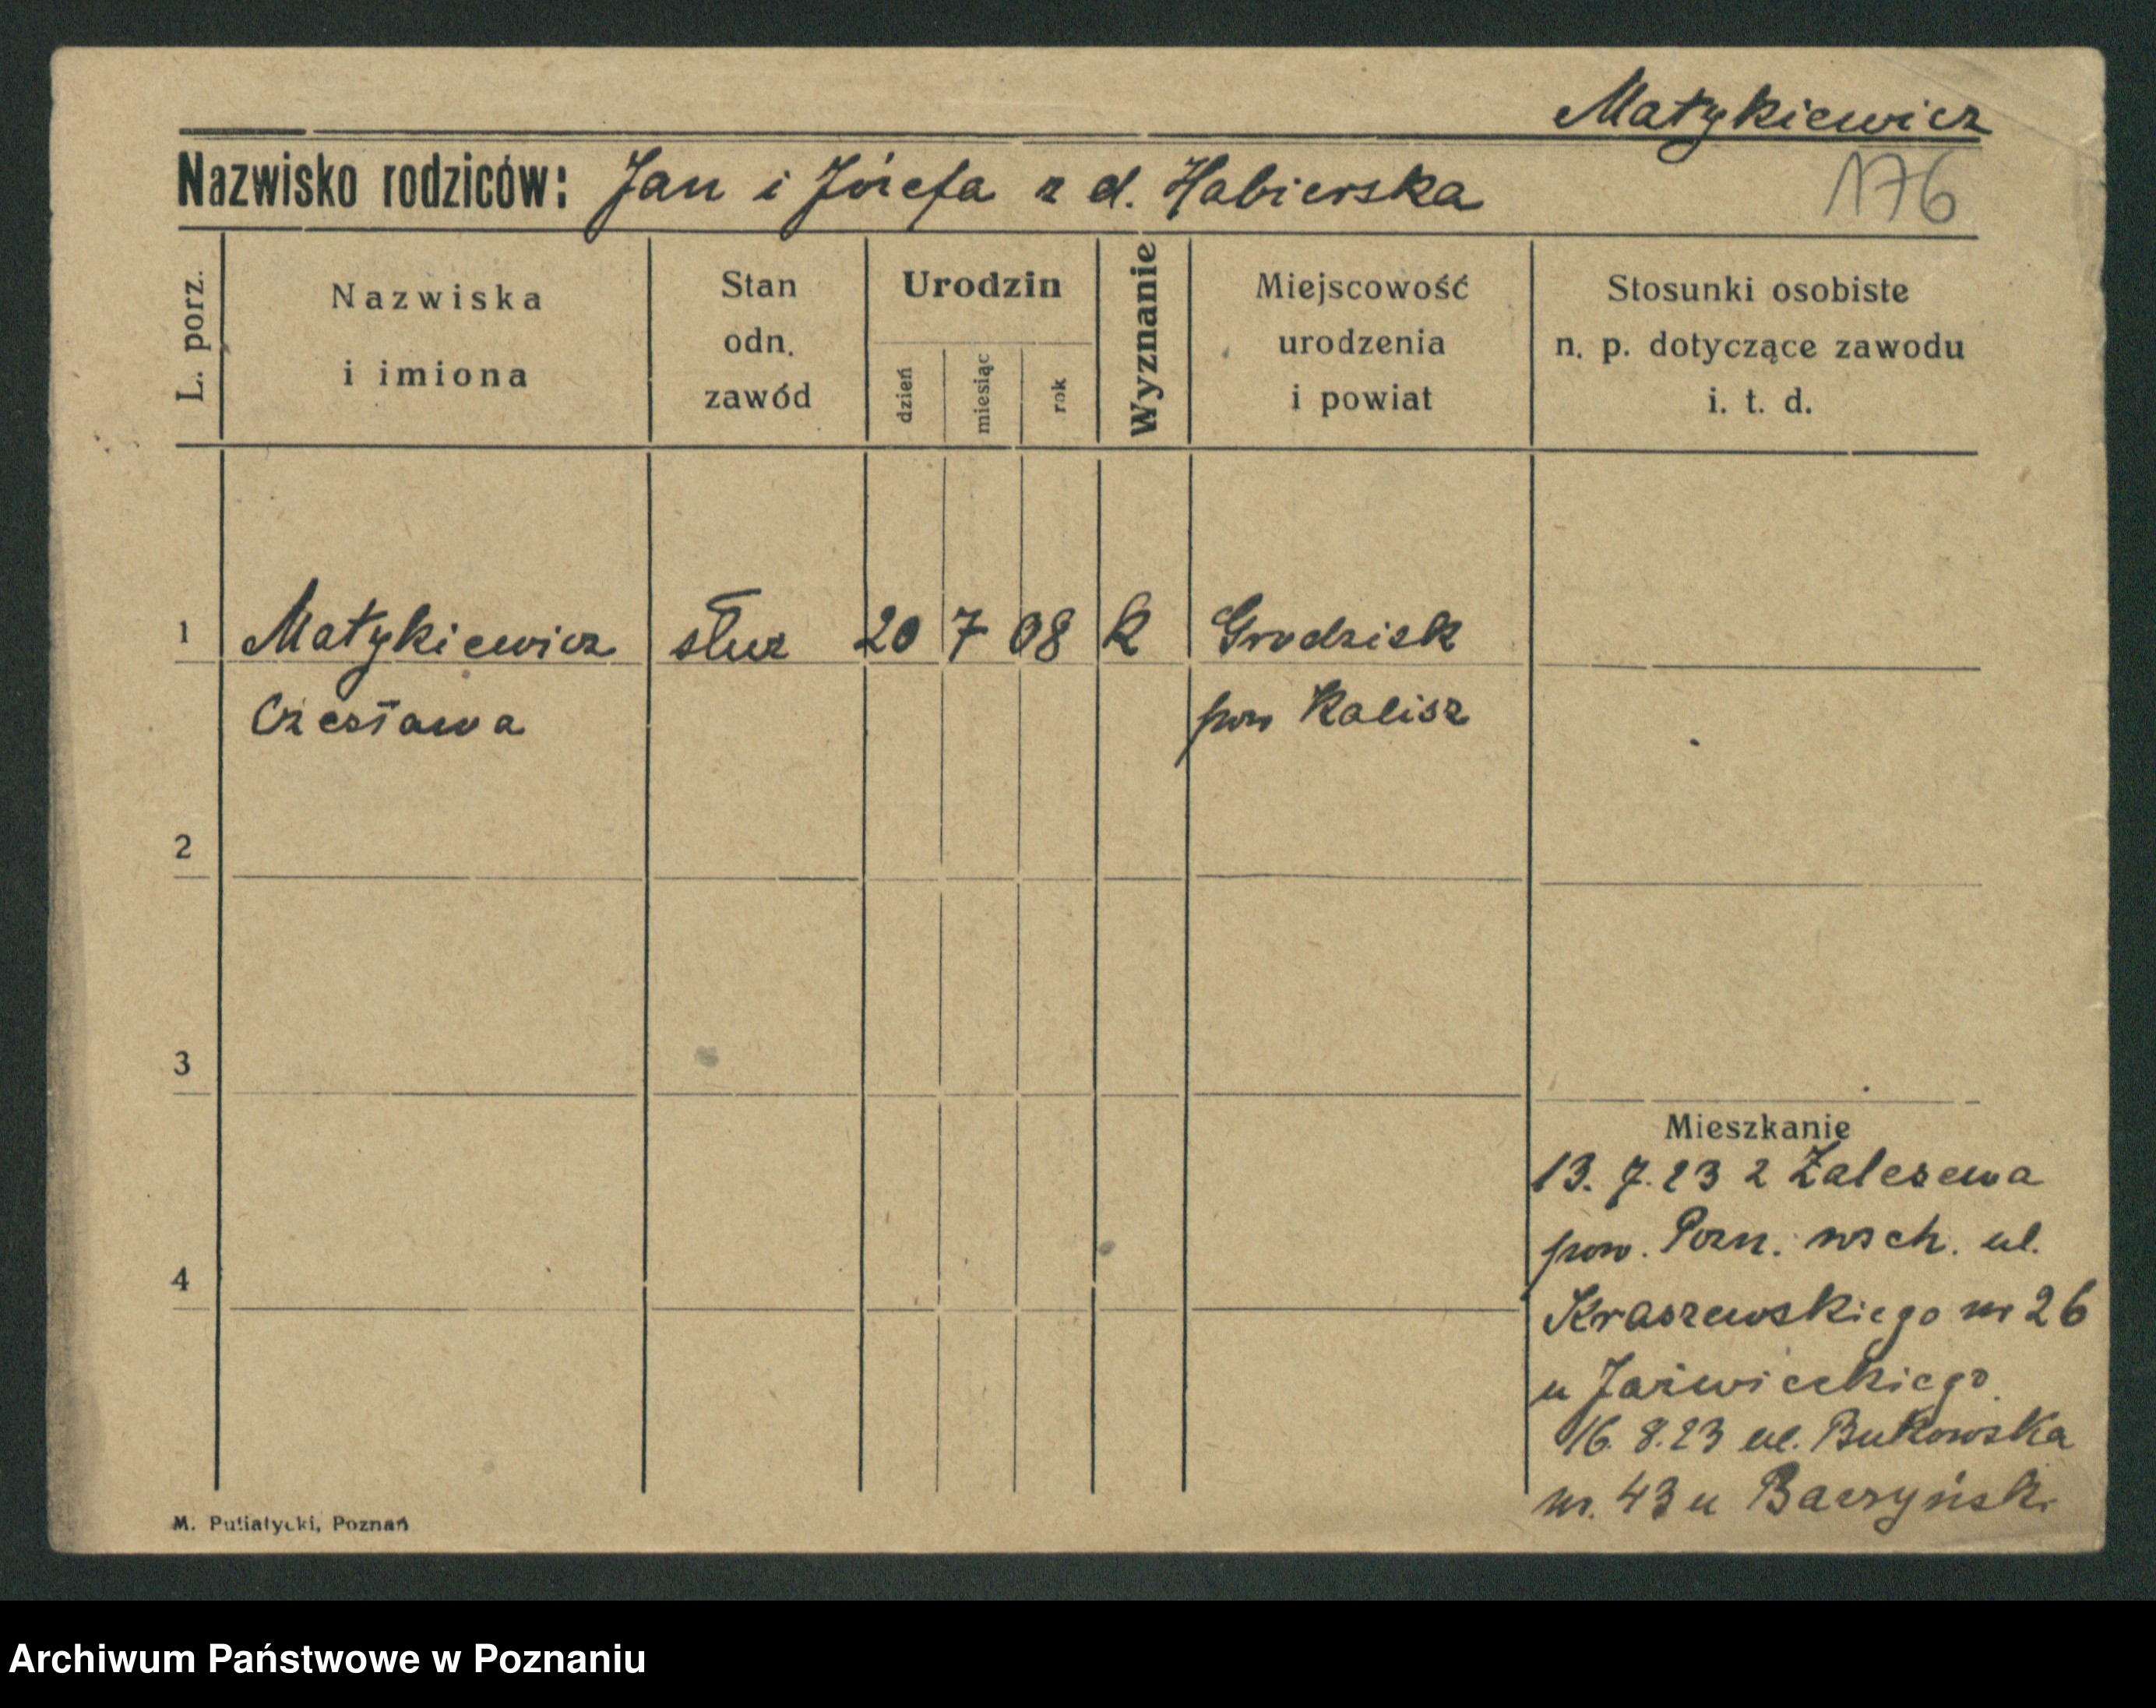 Matykiewicz
Nazwisko rodziców: Jan i Józefa z d. Habierska
176
L. porz.
Nazwiska
i imiona
Stan
odn.
zawód
Urodzin
dzień
miesiąc
rok
Wyznanie
Miejscowość
urodzenia
i powiat
Stosunki osobiste
n. p. dotyczące zawodu
i. t. d.
1 Matykiewicz służ 20 7 08 k Grodzisk
Czesława pow Kalisz
2
3
Mieszkanie
13. 7. 23 z Zalesewa
pow. Pozn. wsch. ul.
4
Kraszewskiego nr 26
u
16. 8. 23 ul. Bukowska
nr. 43 u Baczyński
M. Putiatycki, Poznań
Archiwum Państwowe w Poznaniu